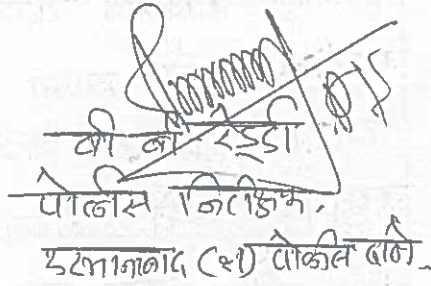 व्ही बी रेड्डी
पोलीस निरीक्षक.
उस्मानाबाद (श) पोलीस ठाणे